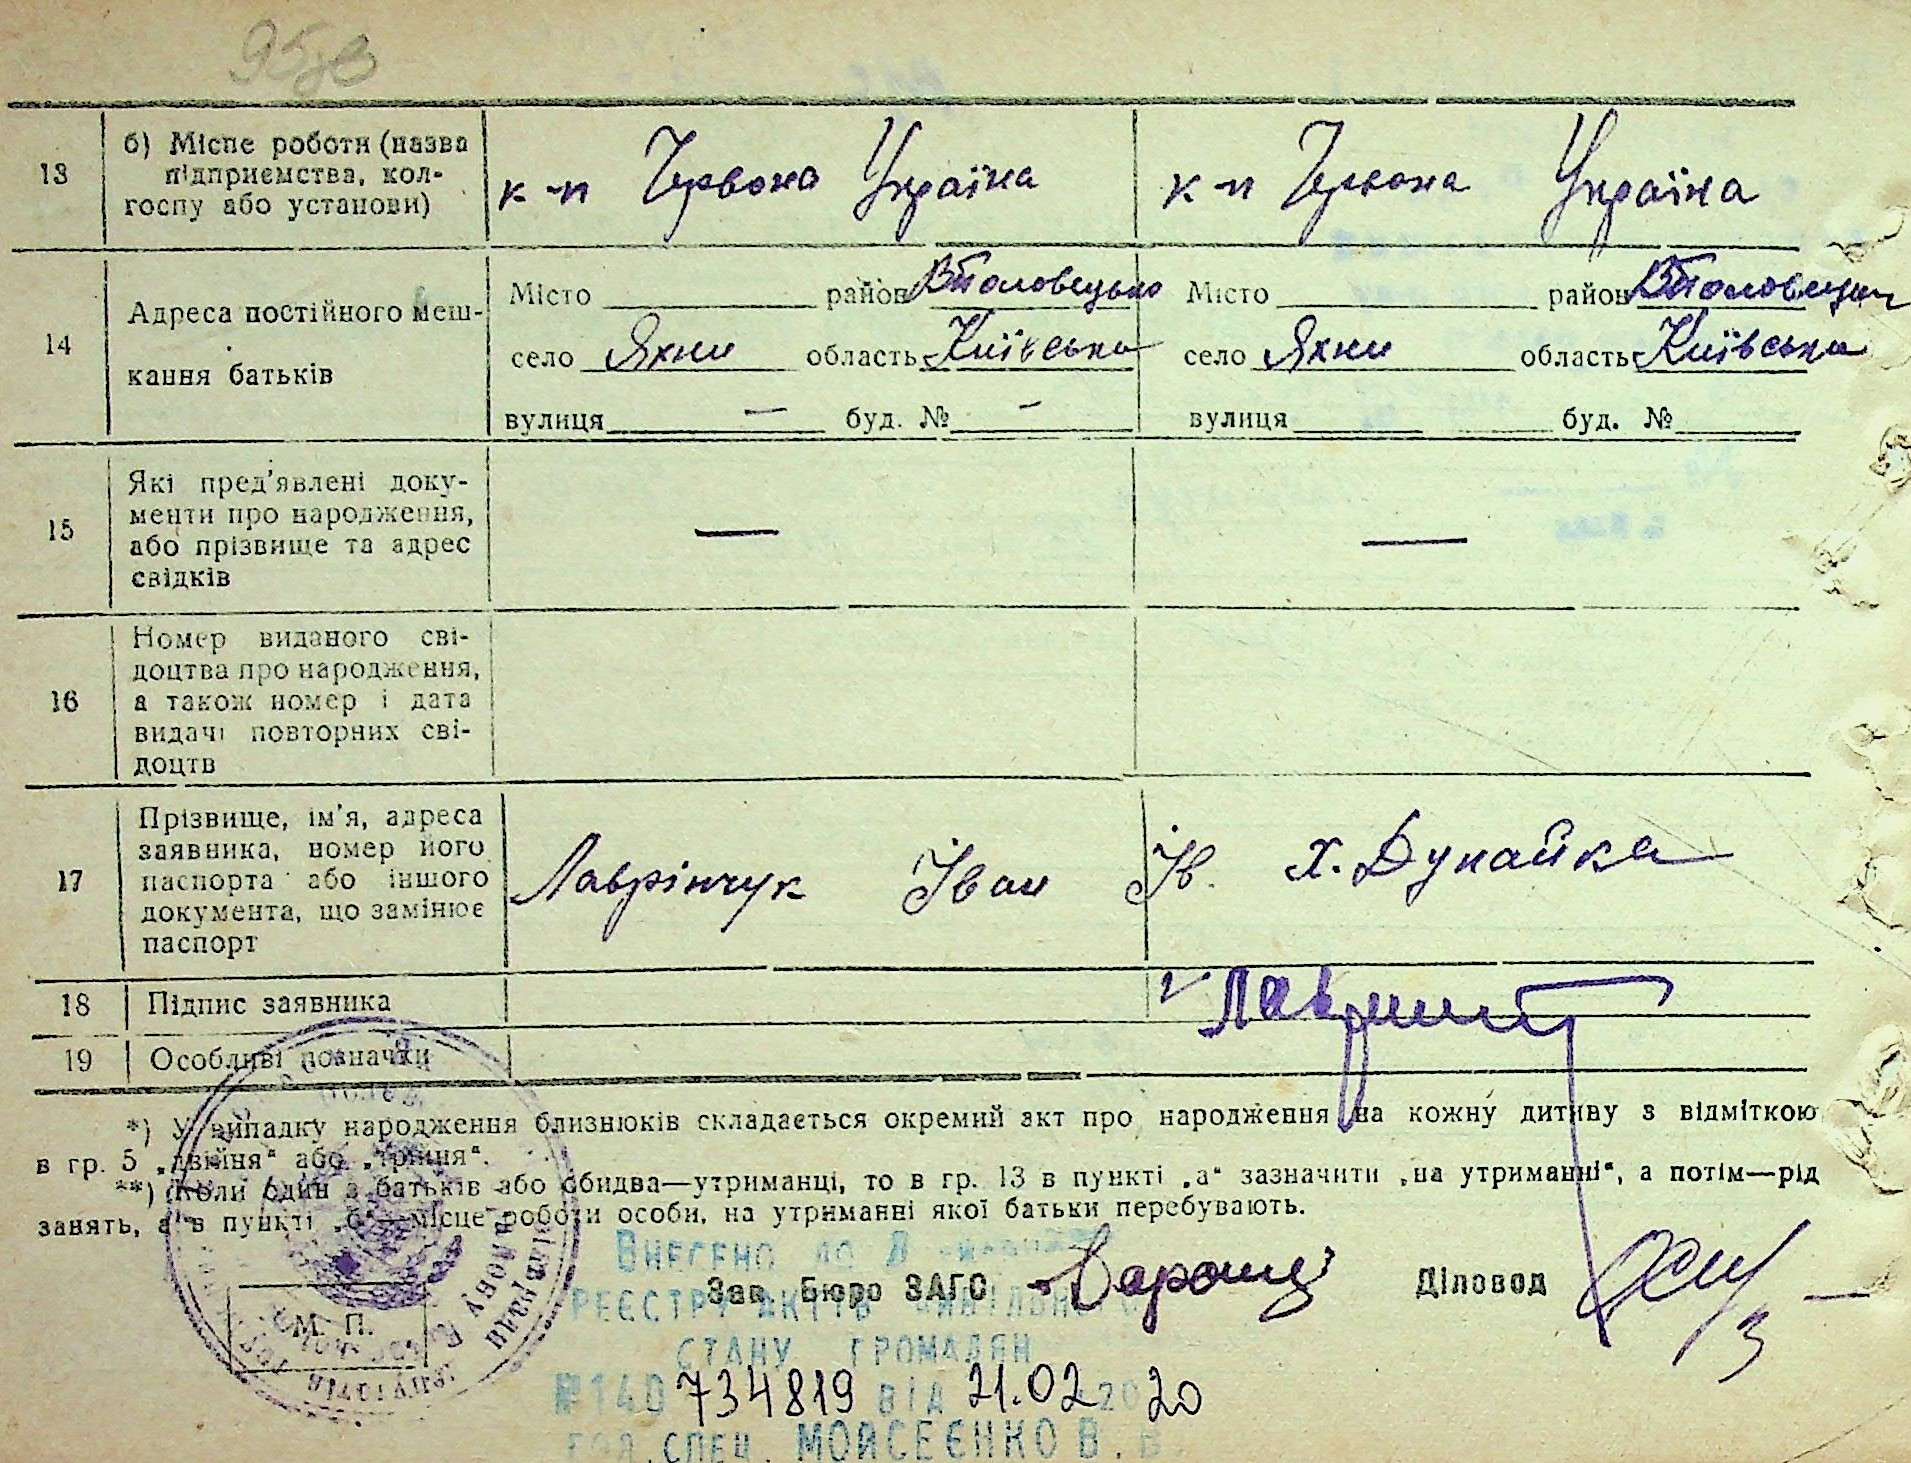 95зв
13 б) Місце роботи (назва підприємства, колгоспу або установи) к-п Червона Україна к-п Червона Україна
14 Адреса постійного мешкання батьків
Місто район В Половецько Місто район В Половецьки
село Яхни область Київська село Яхни область Київська
вулиця — буд. № - вулиця буд. №
15 Які пред'явлені доку-
менти про народження,
або прізвище та адрес
свідків — —
16 Номер виданого сві-
доцтва про народження,
а також номер і дата
видачі повторних сві-
доцтв
17 Прізвище, ім'я, адреса
заявника, номер його
паспорта або іншого
документа, що замінює
паспорт
Лаврінчук Іван Ів. х. Дунайка
18 Підпис заявника
19 Особливі позначки
*) У випадку народження близнюків складається окремий акт про народження на кожну дитину з відміткою
в гр. 5 „двійня" або „трійня".
**) Коли один з батьків або обидва—утриманці, то в гр. 13 в пункті „а" зазначити „на утриманні", а потім—рід
занять, а в пункті „б"—місце роботи особи, на утриманні якої батьки перебувають.
Внесено до
Зав. Бюро ЗАГС Діловод
РЕЄСТРУ АКТІВ ЦИВІЛЬНОГО
СТАНУ ГРОМАДЯН
М. П.
№140 734819 від 21.02 2020
СПЕЦ. МОЙСЕЄНКО В. В.